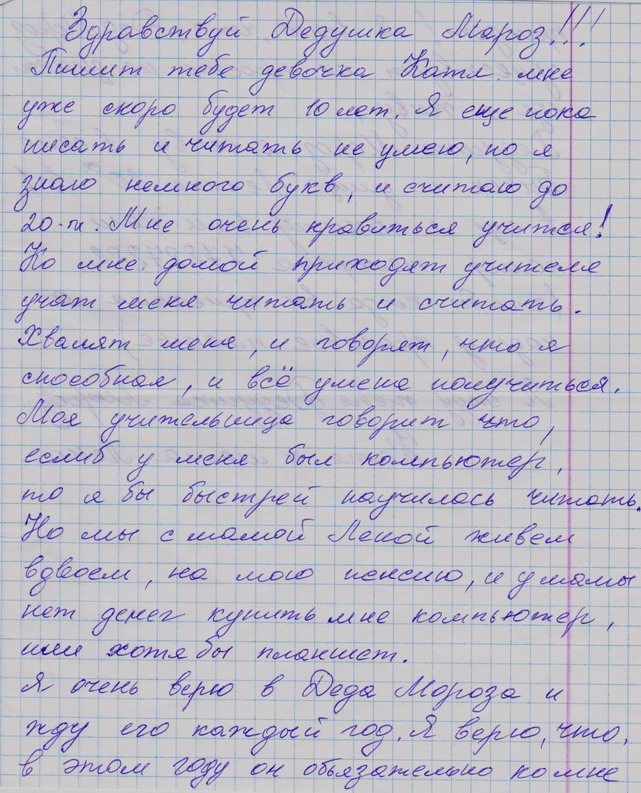 Здравствуй Дедушка Мароз!!!
Пишит тебе девочка Катя. мне
уже скоро будет 10 лет. Я еще пока
писать и читать не умею, но я
знаю немного букв, и считаю до
20-ти. Мне очень нравиться учится!
Ко мне домой приходят учителя
учат меня читать и считать.
Хвалят меня, и говорят, что я
способная, и всё у меня получиться.
Моя учительница говорит что,
еслиб у меня был компьютер,
то я бы быстрей научилась читать.
Но мы с мамой Леной живем
вдвоем, на мою пенсию, и у мамы
нет денег купить мне компьютер,
или хотя бы планшет.
Я очень верю в Деда Мороза и
жду его каждый год. Я верю, что,
в этом году он обьязательно ко мне